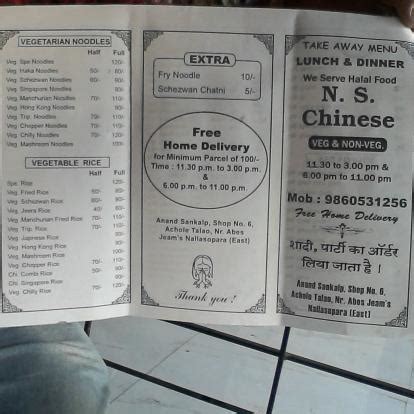 VEGETARIAN NOODLES
Half Full
Veg. Spe Noodles 120/-
Veg. Haka Noodles 50/- 80/-
Veg. Schezwan Noodles 60/- 90/-
Veg. Singapore Noodles
Veg. Manchurian Noodles 70/- 110/-
Veg. Hong Kong Noodles
Veg. Trip. Noodles 70/- 110/-
Veg. Chopper Noodles 70/-
Veg. Chilly Noodles 70/-
Veg. Mashroom Noodles 100/-
VEGETABLE RICE
Half Full
Spe. Rice 120/-
Veg. Fried Rice 50/- 80/-
Veg. Schezwan Rice 60/- 90/-
Veg. Jeera Rice 40/-
Veg. Manchurian Fried Rice 70/-
Veg. Trip. Rice 70/-
Veg. Japnese Rice
Veg. Hong Kong Rice
Veg. Mashroom Rice
Veg. Chopper Rice
Chi. Cumbi Rice
Chi. Singapore Rice
Veg. Chilly Rice
EXTRA
Fry Noodle 10/-
Schezwan Chatni 5/-
Free
Home Delivery
for Minimum Parcel of 100/-
Time : 11.30 p.m. to 3.00 p.m.
&
6.00 p.m. to 11.00 p.m.
Anand Sankalp, Shop No. 6,
Achole Talao, Nr. Abes
Jeam's Nallasopara (East)
Thank you !
TAKE AWAY MENU
LUNCH & DINNER
We Serve Halal Food
N. S.
Chinese
VEG & NON-VEG.
11.30 to 3.00 pm &
6.00 pm to 11.00 pm
Mob : 9860531256
Free Home Delivery
शादी, पार्टी का ऑर्डर
लिया जाता है ।
Anand Sankalp, Shop No. 6,
Achole Talao, Nr. Abes Jeam's
Nallasopara (East)